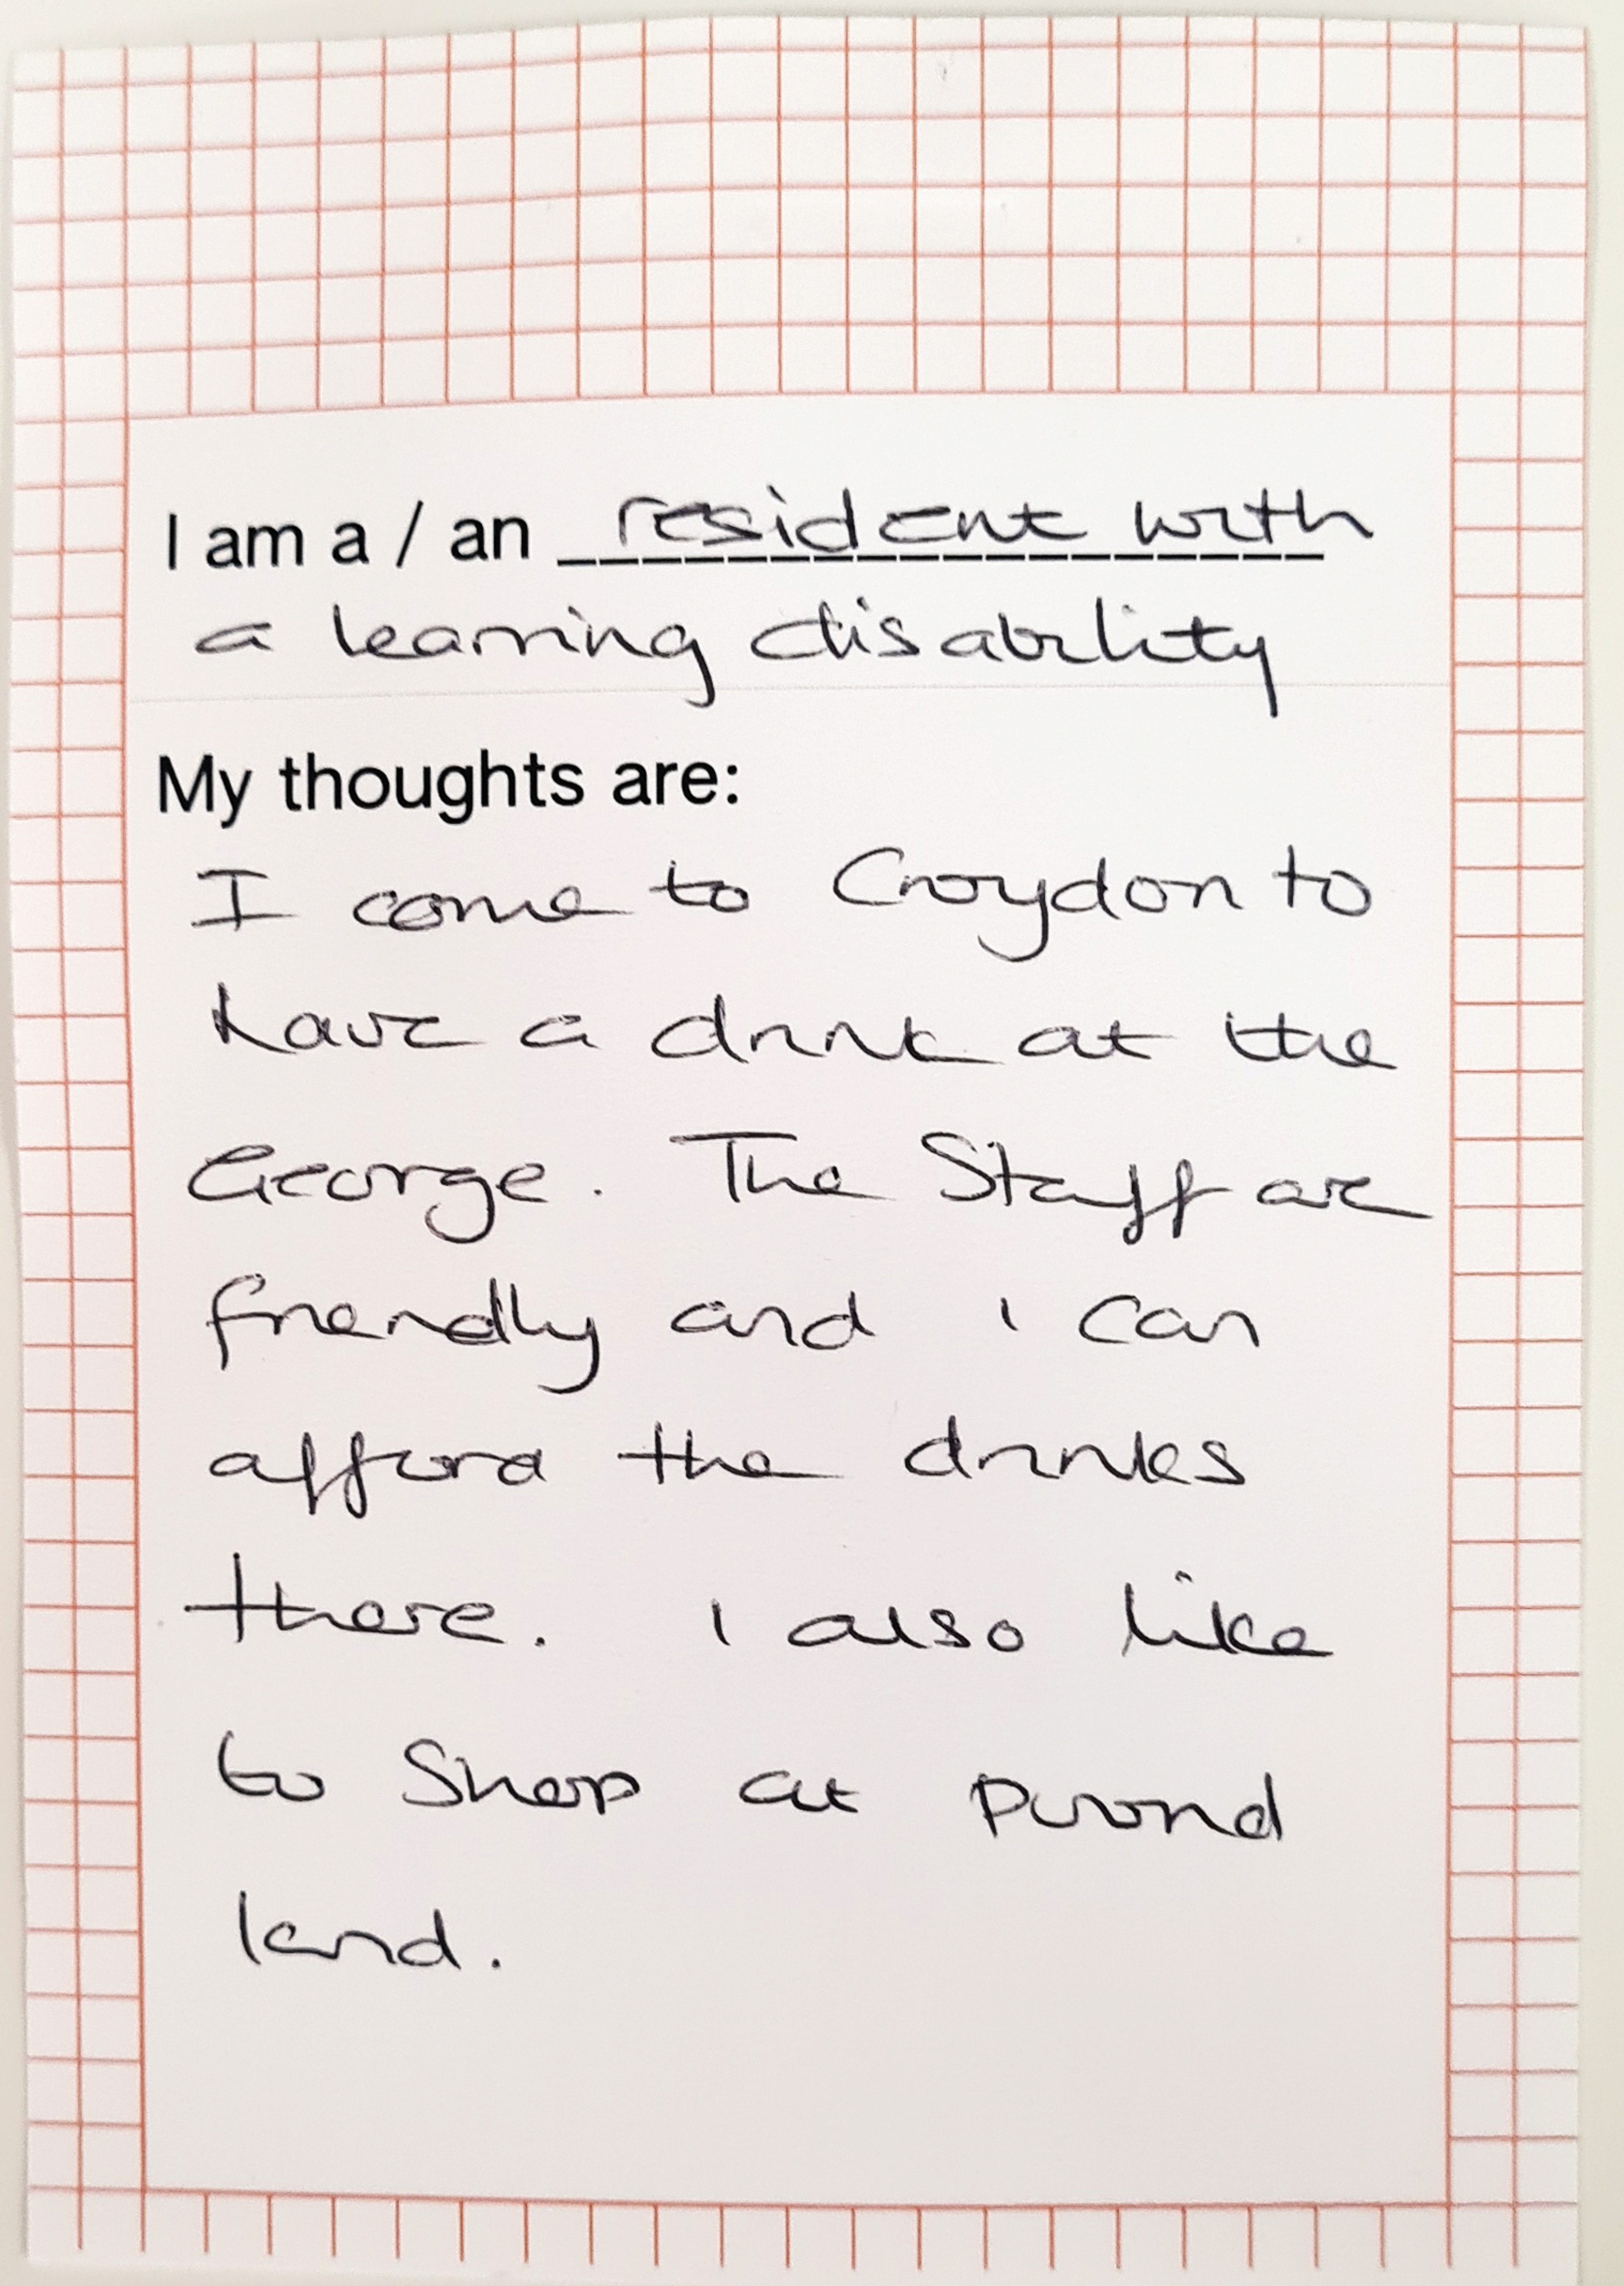 I am a / an resident with
a learning disability
My thoughts are:
I come to Croydon to
have a drink at the
George. The Staff are
friendly and i can
afford the drinks
there. I also like
to Shop at Pound
land.